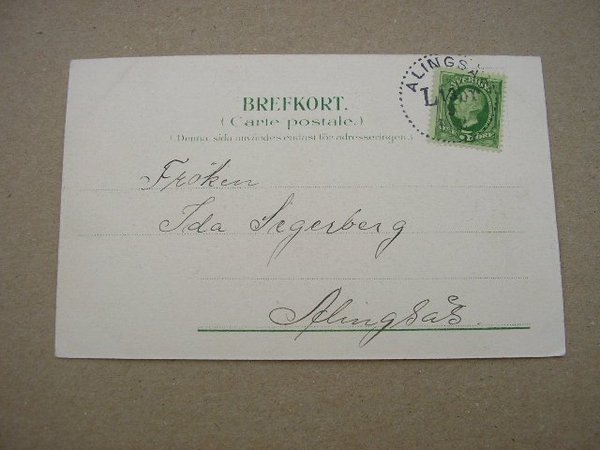 BREFKORT.
(Carte postale.)
(Denna sida användes endast för adresseringen.)
ALINGSÅS
SVERIGE
5 ÖRE
Fröken
Ida Segerberg
Alingsås.